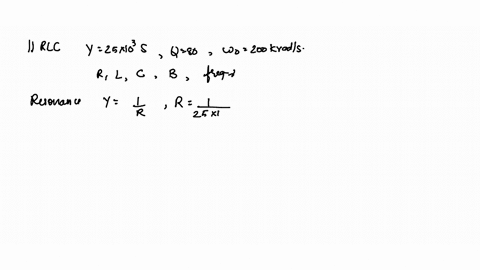 || RLC Y = 25×10³ S , Q=80 , ω₀ = 200 krad/s.
R, L, C, B, freq
Resonance Y = 1/R , R = 1/25×1